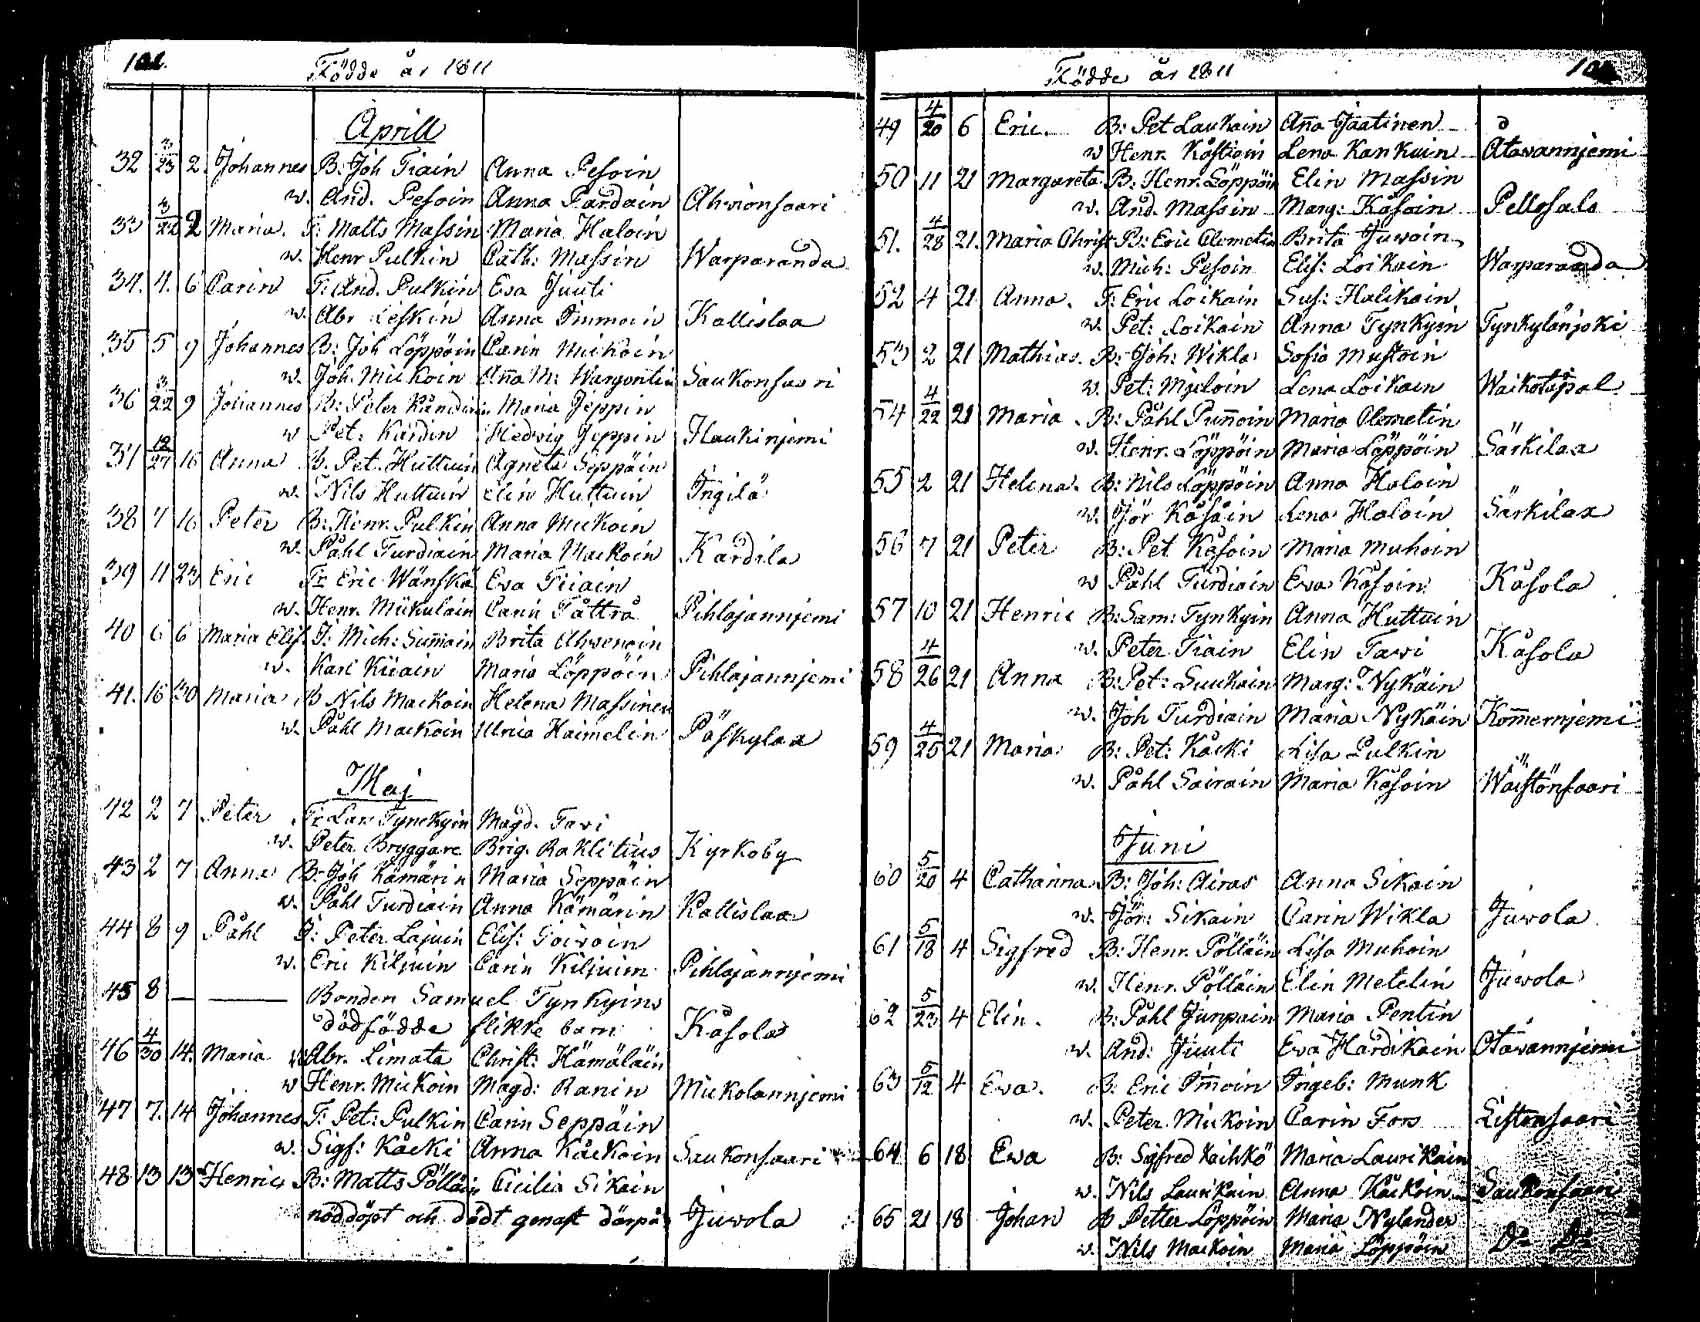 Födde år 1811
Aprill
32 3/23 2. Johannes B: Joh Tiain Anna Pesoin
w. And. Pesoin Anna Pardain Ahvionsaari
33 3/22 2 Maria. T: Matts Massin Maria Haloin
w. Henr Pulkin Cath: Massin Warparanda
34. 4. 6 Carin T: And. Pulkin Eva Juuti
w. Abr Leskin Anna Immoin Kallislaa
35 5 9 Johannes B: Joh Löppöin Carin Mickoin
w. Joh. Mickoin Aña M: Saukonsaari
36 3/22 9 Johannes B: Peter Maria Jeppin
w Pet: Kardin Hedvig Jeppin Haukinjemi
37 12/27 16 Anna B. Pet. Huttuin Agneta Seppäin
w. Nils Huttuin Elin Huttuin Ingilä
38 7 16 Peter B: Henr. Pulkin Anna Mickoin
w. Påhl Turdiain Maria Mackoin Kardila
39 11 23 Eric T: Eric Wänskä Eva Tiiain
w. Henr. Mikulain Carin Tåttrå Pihlajannjemi
40 6 6 Maria Elis. T: Mich: Sum̄ain Brita Ahvenoin
w. Karl Kiiain Maria Löppöin Pihlajannjemi
41. 16 30 Maria B Nils Mackoin Helena Massinen
w. Påhl Mackoin Ulrica Haimelin Päskylax
Maj
42 2 7 Peter T: Lars Tynckyin Magd. Tavi
w. Peter Bryggare Brig. Raklitius Kyrkoby
43 2 7 Anna B: Joh Kämärin Maria Seppäin
w. Påhl Turdiain Anna Kämärin Kallislaa
44 8 9 Påhl T: Peter Lajuin Elis: Toivoin
w. Eric Kiljuin Carin Kiljuin Pihlajannjemi
45 8 — — Bonden Samuel Tynkyins
dödfödde flikke barn Kåsola
46 4/30 14. Maria Abr. Limata Christ: Hämäläin
w Henr. Mickoin Magd: Ranin Mickolannjemi
47 7. 14 Johannes T: Pet: Pulkin Carin Seppäin
w. Sigf: Kåcki Anna Kåckoin Saukonsaari
48 13 13 Henric B: Matts Pölläin Cicilia Sikain
nöddöpt och dödt genast därpå Juvola
Födde år 1811
49 4/20 6 Eric. B: Pet Laukain Aña Jäätinen
w Henr. Kåstiain Lena Kankuin Åtavannjemi
50 11 21 Margareta B: Henr. Löppöin Elin Massin
w. And. Massin Marg: Kåsoin Pellosalo
51. 4/28 21. Maria Christ B: Eric Clemetin Brita Juvoin
w. Mich: Pesoin Elis: Loikain Warparanda
52 4 21 Anna. T: Eric Loikain Sus: Halikain
w. Pet: Loikain Anna Tynkyin Tynkylänjoki
53 2 21 Mathias. B: Joh: Wikla Sofia Mustoin
w. Pet: Myloin Lena Loikain
54 4/22 21 Maria B: Påhl Pum̄oin Maria Clemetin
w. Henr. Löppöin Maria Löppöin Särkilax
55 2 21 Helena. B: Nils Löppöin Anna Haloin
w. Jör Kåsoin Lena Haloin Särkilax
56 7 21 Peter B: Pet. Kåsoin Maria Muhoin
w Påhl Turdiain Eva Kåsoin Kåsola
57 10 21 Henric B: Sam: Tynkyin Anna Huttuin
w. Peter Tiain Elin Tavi Kåsola
58 4/26 21 Anna B: Pet: Suukain Marg: Nykäin
w. Joh Turdiain Maria Nykäin Kom̄ernjemi
59 4/25 21 Maria B: Pet: Kåcki Lisa Pulkin
w. Påhl Sairain Maria Kåsoin Wäistönsaari
Juni
60 5/20 4 Catharina B: Joh: Airas Anna Sikain
w. Jör: Sikain Carin Wikla Juvola
61 5/18 4 Sigfred B: Henr. Pölläin Lisa Muhoin
w. Henr. Pölläin Elin Metelin Juvola
62 5/23 4 Elin. B: Påhl Junpain Maria Pentin
w. And: Juuti Eva Hardikain Otavannjemi
63 5/12 4 Eva. B: Eric Im̄oin Ingeb: Munk
w. Peter Mickoin Carin Fors Listonsaari
64. 6 18 Eva B: Sigfred Kaihko Maria Laurikain
w. Nils Laurikain Anna Kåckoin Saukonsaari
65 21 18 Johan B Petter Löppöin Maria Nylander
w. Nils Mackoin Maria Löppöin Do Do